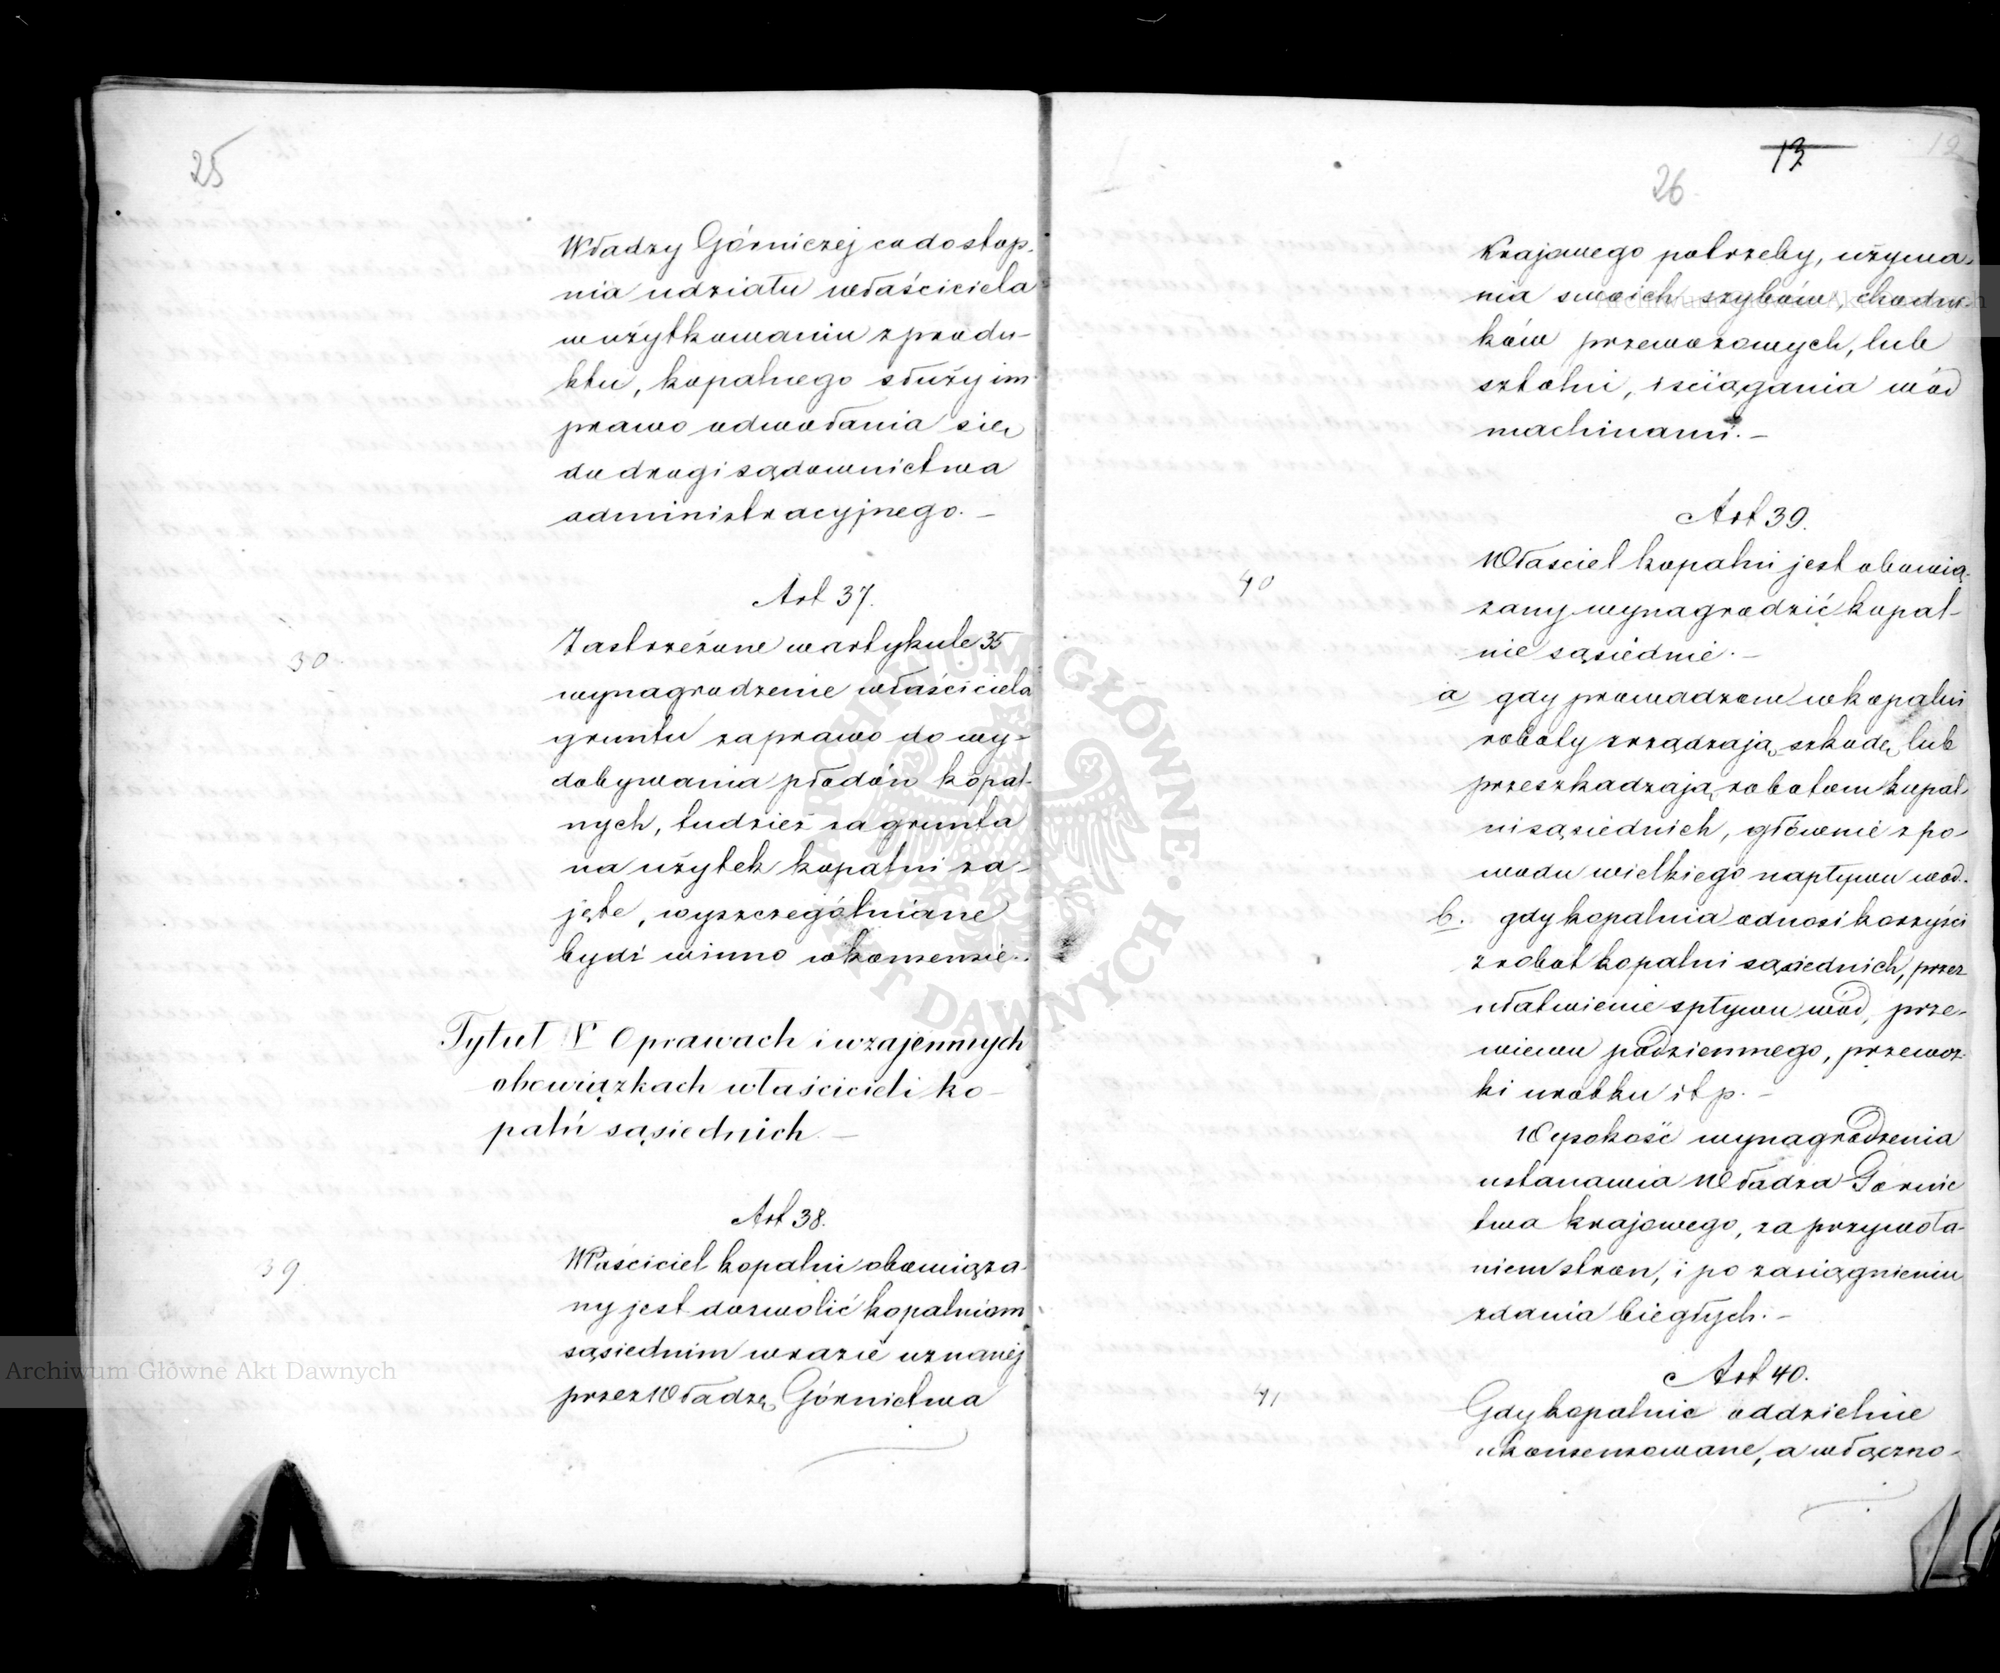 25
Władzy Górniczej co do stop-
nia udziału właściciela
w użytkowaniu z produ-
ktu, kopalnego służy im
prawo odwołania się
do drogi sądownictwa
administracyjnego. —
Art 37.
30
Zastrzeżone w artykule 35
wynagrodzenie właściciela
gruntu za prawo do wy-
dobywania płodów kopal-
nych, tudzież za grunta
na użytek kopalni za-
jęte, wyszczególniane
bydź winno w konsensie.
Tytuł V O prawach i wzajemnych
obowiązkach właścicieli ko-
palń sąsiednich. —
Art 38.
39
Właściciel kopalni obowiąza-
ny jest dozwolić kopalniom
sąsiednim w razie uznanéj
przez Władzę Górnictwa
13
12
26
Krajowego potrzeby, używa-
nia swoich szybów, chodni-
ków przewozowych, lub
sztolni, i sciągania wód
machinami. —
Art 39.
40
Właściel kopalni jest obowią-
zany wynagrodzić kopal-
nie sąsiednie. —
a gdy prowadzone w kopalni
roboty zrządzają szkodę, lub
przeszkadzają robotom kopal-
ni sąsiednich, głównie z po-
wodu wielkiego napływu wod.
b. gdy kopalnia odnosi korzyści
z robot kopalni sąsiednich, przez
ułatwienie spływu wód, prze-
wiewu podziemnego, przewoz-
ki urobku itp. —
Wysokość wynagrodzenia
ustanawia Władza Górnic
twa krajowego, za przywoła-
niem stron, i po zasiągnieniu
zdania biegłych. —
Art 40.
41
Gdy kopalnie oddzielnie
ukonsensowane, a włączno-
Archiwum Główne Akt Dawnych
ARCHIWUM GŁÓWNE • AKT DAWNYCH •